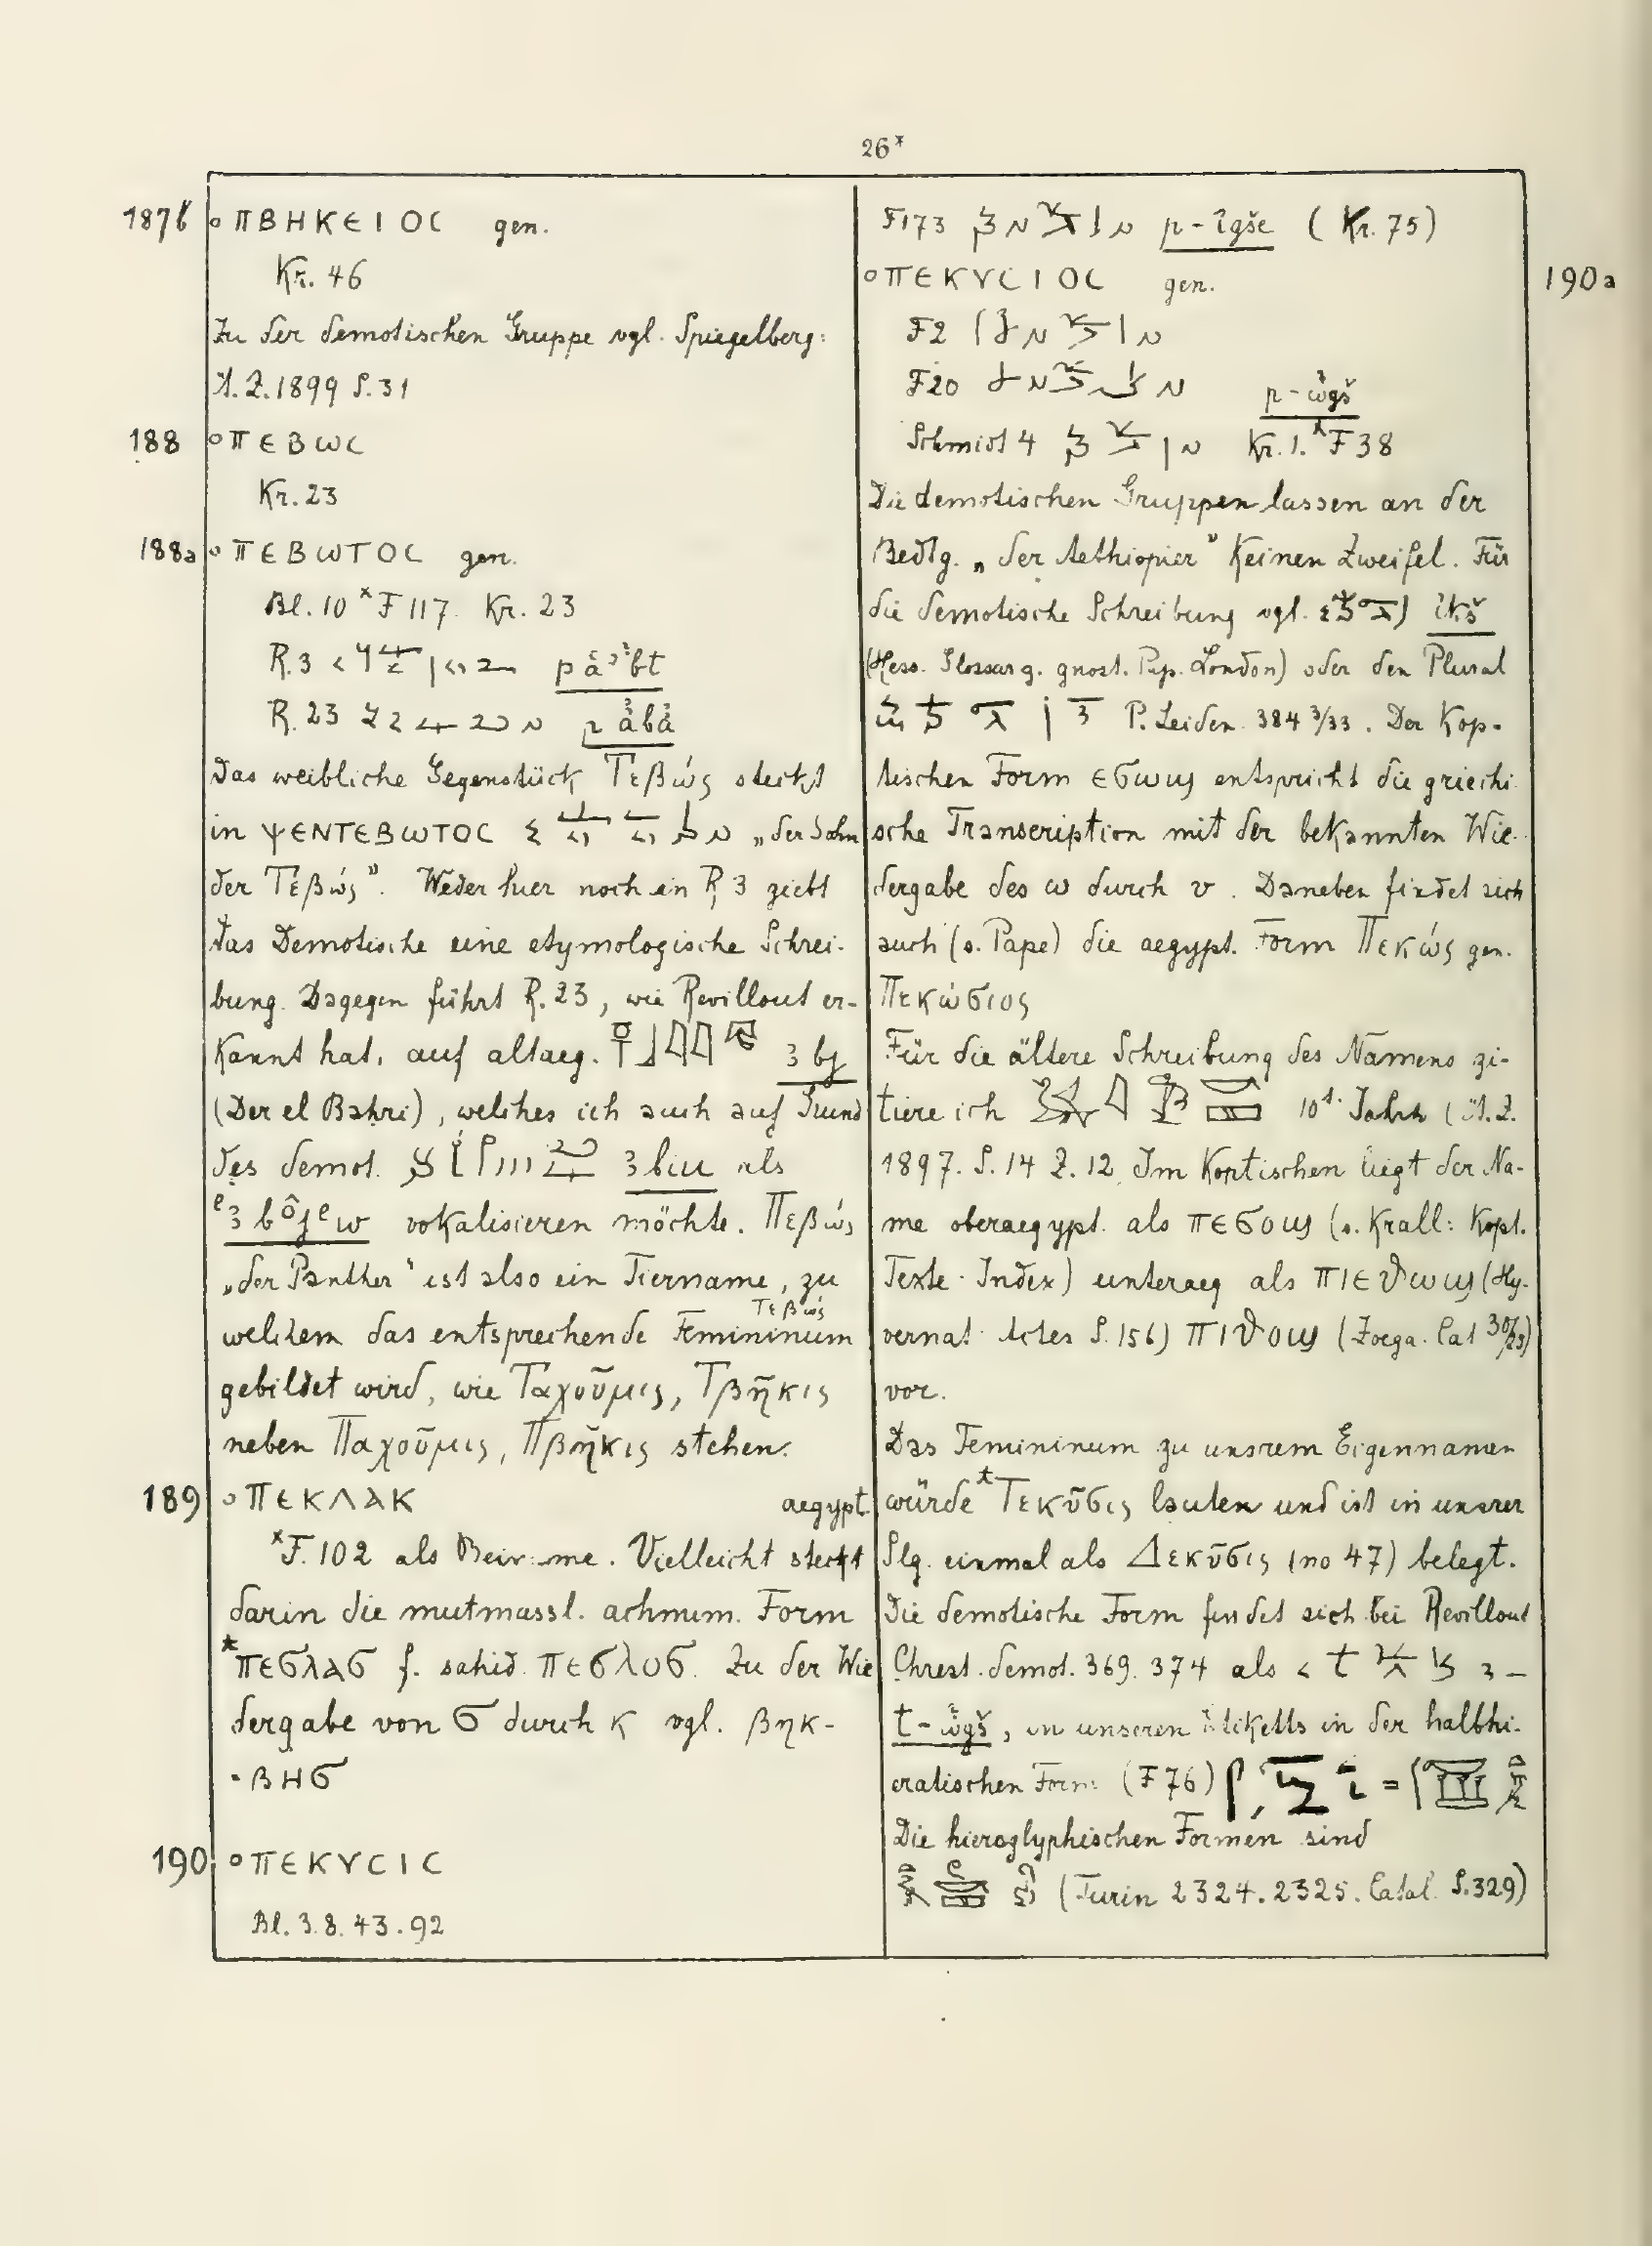 26*
187b ○ΠΒΗΚΕΙΟC gen.
Kr. 46
Zu der demotischen Gruppe vgl. Spiegelberg:
Ä.Z. 1899 S. 31
188 ○ΠΕΒωC
Kr. 23
188a ○ΠΕΒωΤΟC gen.
Bl. 10 *F 117. Kr. 23
R. 3
R. 23
Das weibliche Gegenstück Τεβώς steckt
in ΨΕΝΤΕΒωΤΟC „der Sohn
der Τεβώς". Weder hier noch in R. 3 giebt
das Demotische eine etymologische Schrei-
bung. Dagegen führt R. 23, wie Revillout er-
kannt hat, auf altaeg. 3 bj
(Der el Bahri), welches ich auch auf Grund
des demot. 3biu als
e3 bôjew vokalisieren möchte. Πεβώς
„der Panther" ist also ein Tiername, zu
welchem das entsprechende Femininum Τεβώς
gebildet wird, wie Ταχοῦμις, Τβῆκις
neben Παχοῦμις, Πβῆκις stehen.
189 ○ΠΕΚΛΑΚ aegypt.
*F. 102 als Beiname. Vielleicht steckt
darin die mutmassl. achmim. Form
*ⲡⲉϭⲗⲁϭ f. sahid. ⲡⲉϭⲗⲟϭ. Zu der Wie
dergabe von ϭ durch κ vgl. βηκ-
·ⲃⲏϭ
190 ○ΠΕΚΥCΙC
Bl. 3. 8. 43. 92
F173 p-îgše (Kr. 75)
○ΠΕΚΥCΙΟC gen. 190a
F2
F20 p-ὠgš
Schmidt 4 Kr. 1. *F 38
Die demotischen Gruppen lassen an der
Bedtg. „der Aethiopier" keinen Zweifel. Für
die demotische Schreibung vgl.
(Hess. Glossar g. gnost. Pap. London) oder den Plural
P. Leiden 384 3/33. Der Kop-
tischen Form ⲉϭⲱϣ entspricht die griechi
sche Transcription mit der bekannten Wie-
dergabe des ω durch υ. Daneben findet sich
auch (s. Pape) die aegypt. Form Πεκώς gen.
Πεκώσιος
Für die ältere Schreibung des Namens zi-
tiere ich 10t. Jahrh (Ä.Z.
1897. S. 14 Z. 12. Im Koptischen liegt der Na-
me oberaegypt. als ⲡⲉϭⲟϣ (s. Krall: Kopt.
Texte · Index) unteraeg als ⲡⲓⲉϑⲱϣ (Hy-
vernat · Actes S. 156) ⲡⲓϑⲟϣ (Zoega. Cat 30/23)
vor.
Das Femininum zu unsrem Eigennamen
würde *Τεκῦσις lauten und ist in unsrer
Slg. einmal als Δεκῦσις (no 47) belegt.
Die demotische Form findet sich bei Revillout
Chrest. demot. 369. 374 als
t-ὠgš, in unseren Etiketts in der halbhi-
eratischen Form (F 76) =
Die hieroglyphischen Formen sind
(Turin 2324. 2325. Catal. S. 329)